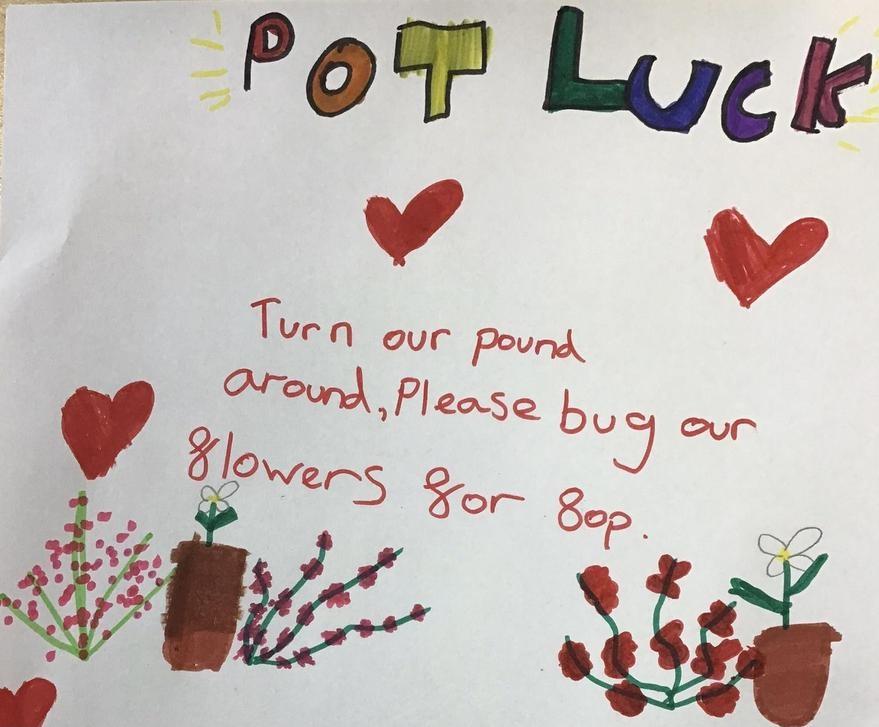 POT LUCK
Turn our pound
around, Please bug our
flowers for 80p.